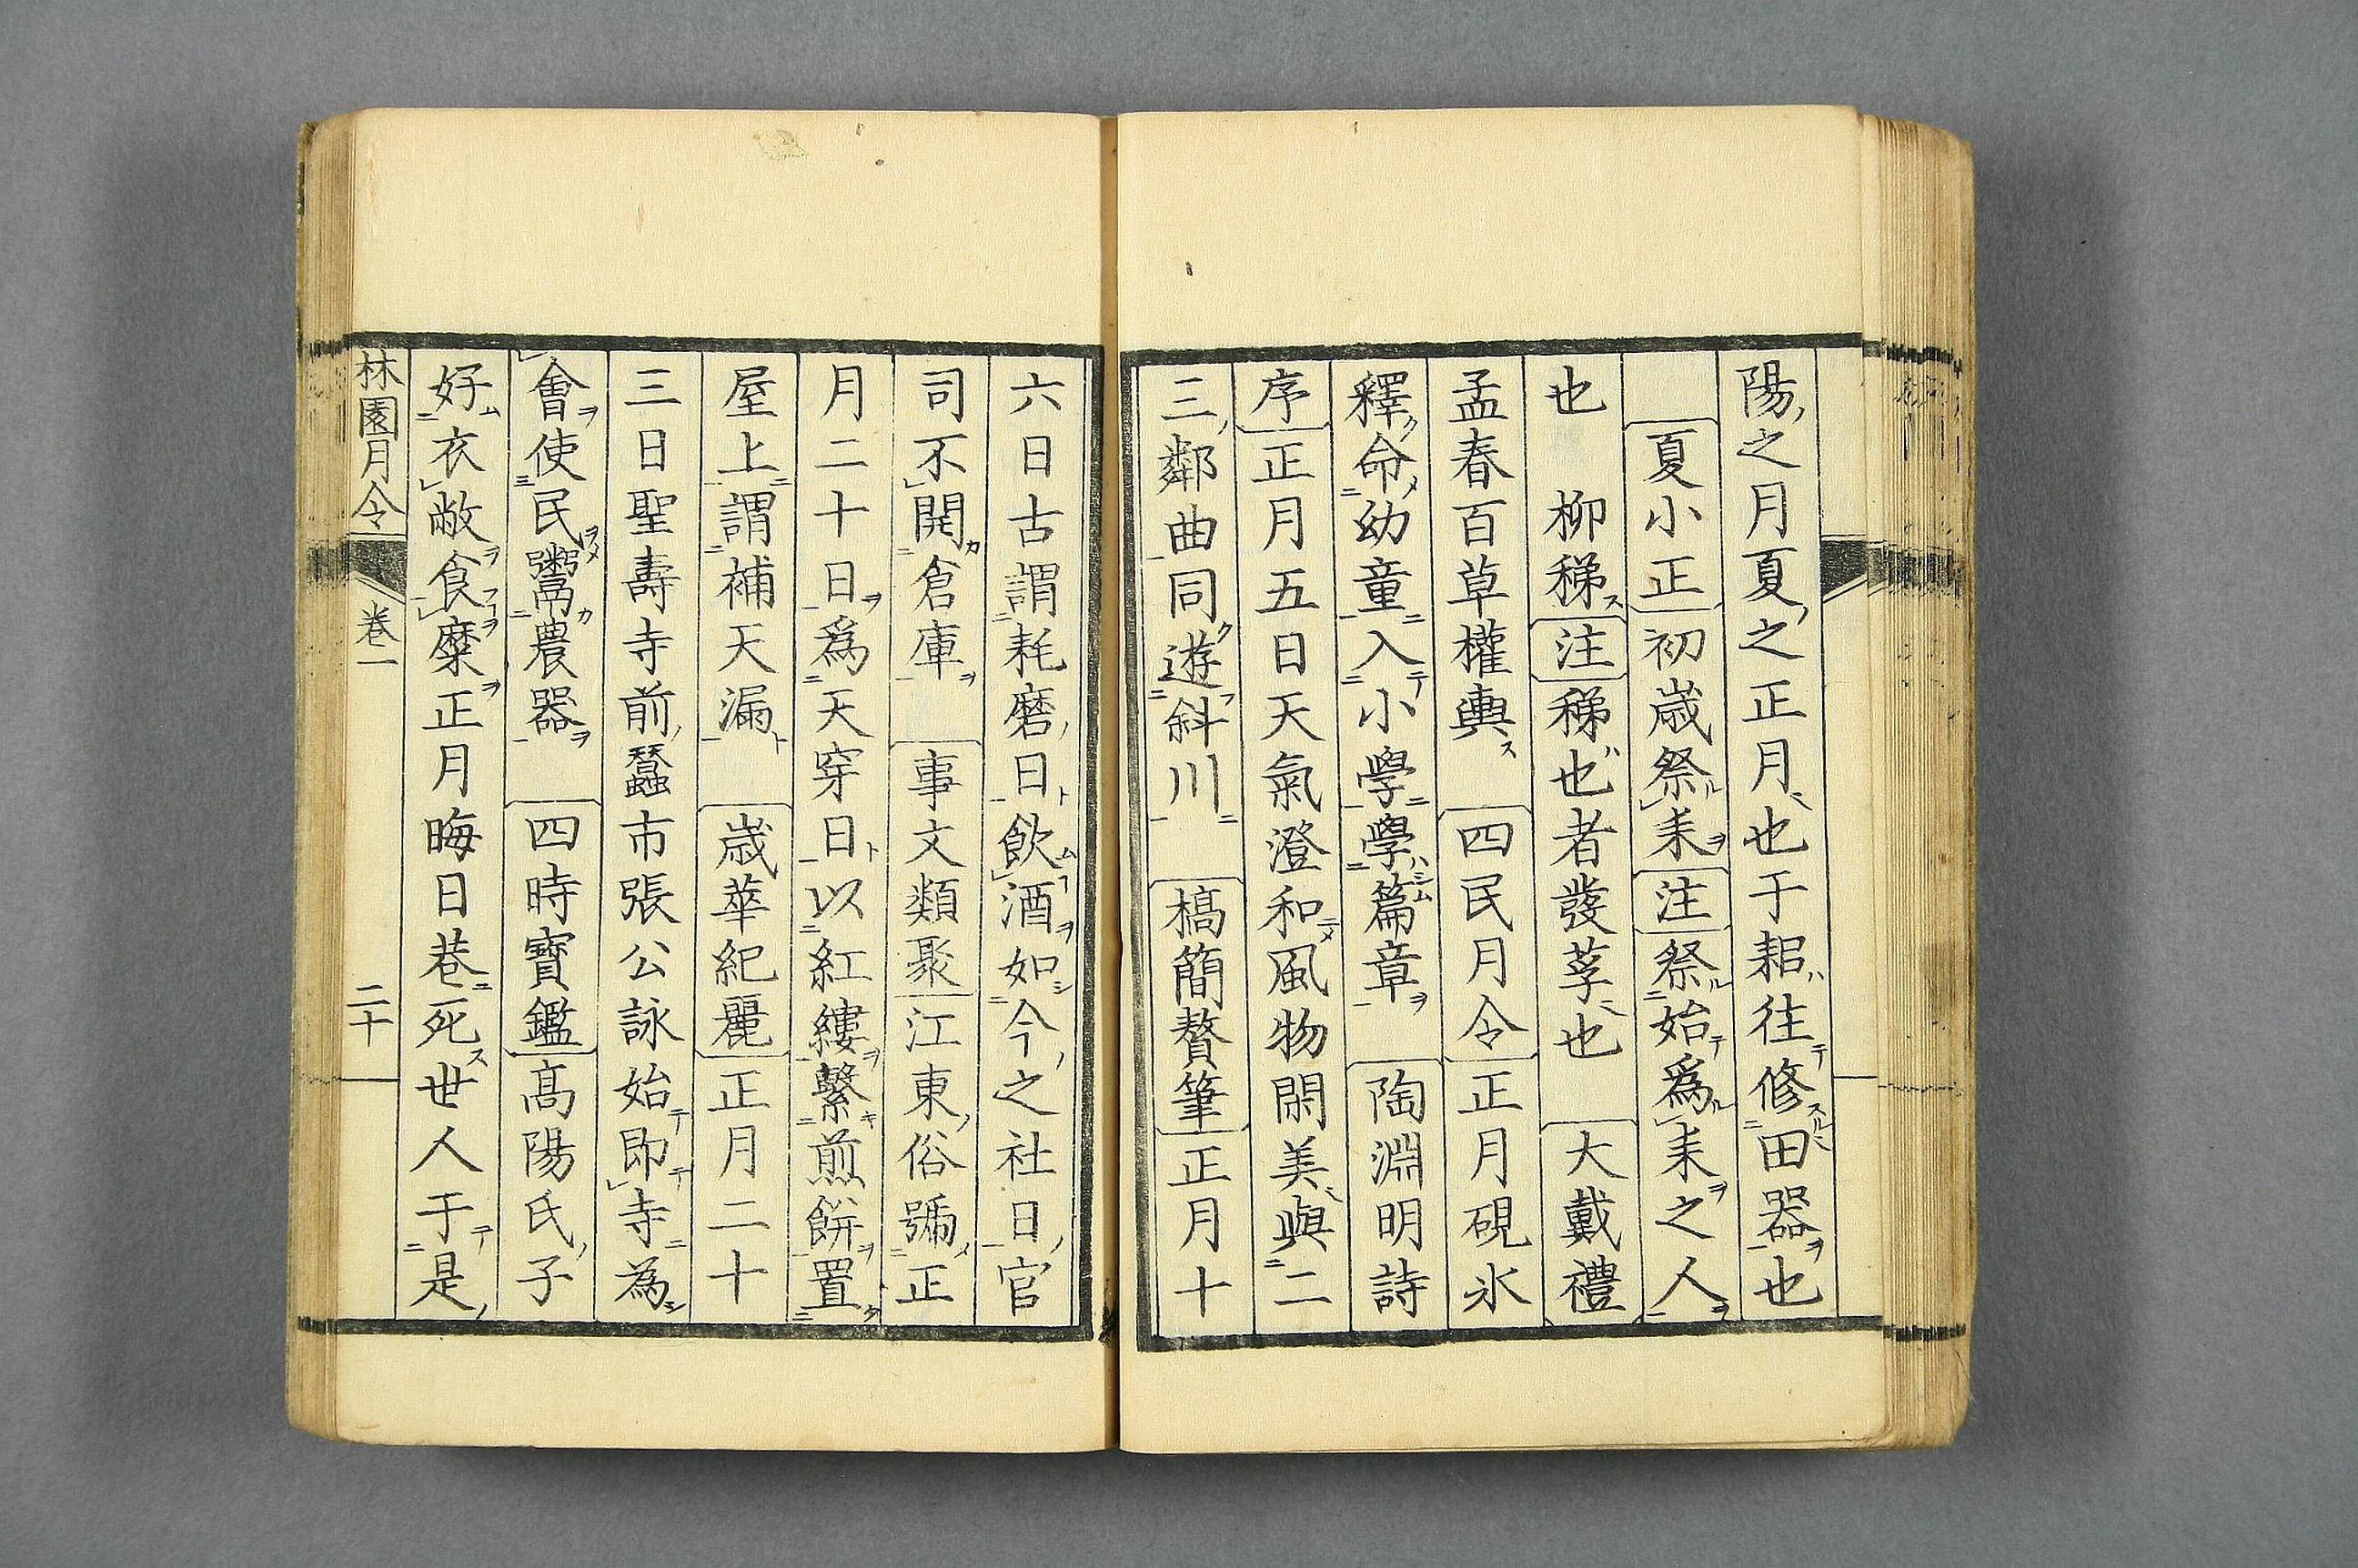 陽之月夏之正月也于耜往修田器也
夏小正初嵗祭耒注祭始爲耒之人
也 柳稊注稊也者發莩也 大戴禮
孟春百草權輿 四民月令正月硯氷
釋命幼童入小學學篇章 陶淵明詩
序正月五日天氣澄和風物閑美與二
三鄰曲同遊斜川 槁簡贅筆正月十
六日古謂耗磨日飲酒如今之社日官
司不開倉庫 事文類聚江東俗號正
月二十日爲天穿日以紅縷繫煎餅置
屋上謂補天漏 嵗華紀麗正月二十
三日聖壽寺前蠶市張公詠始即寺為
會使民鬻農器 四時寳鑑髙陽氏子
好衣敝食糜正月晦日巷死世人于是
林園月令 卷一 二十